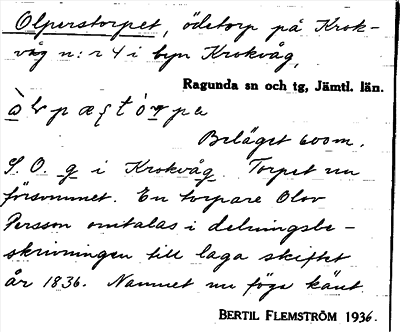 Olperstorpet, ödetorp på Krok-
våg n:r 4 i byn Krokvåg,
Ragunda sn och tg, Jämtl. län.
Beläget 600 m.
S. O. g i Krokvåg. Torpet nu
försvunnet. En torpare Olov
Persson omtalas i delningsbe-
skrivningen till laga skiftet
år 1836. Namnet nu föga känt.
BERTIL FLEMSTRÖM 1936.